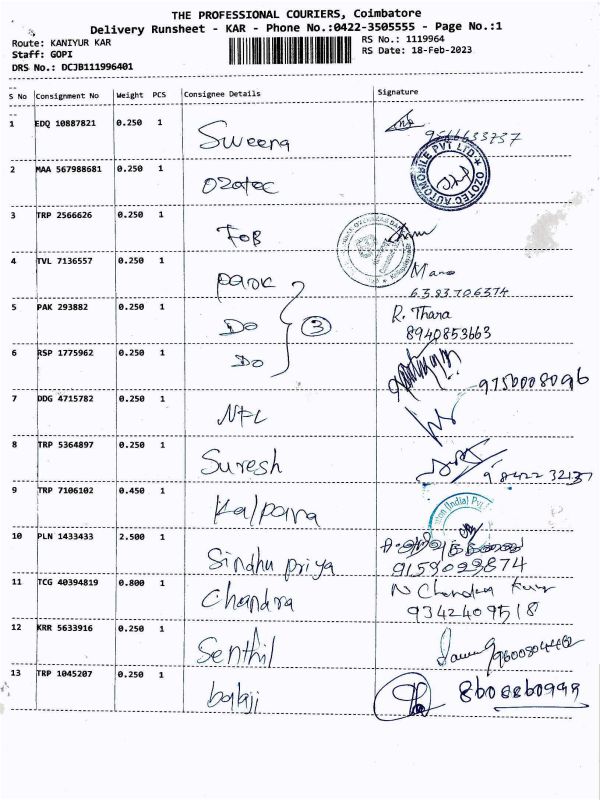 THE PROFESSIONAL COURIERS, Coimbatore
Delivery Runsheet - KAR - Phone No.:0422-3505555 - Page No.:1
Route: KANIYUR KAR
RS No.: 1119964
Staff: GOPI
RS Date: 18-Feb-2023
DRS No.: DCJB111996401
S No Consignment No Weight PCS Consignee Details Signature
1 EDQ 10887821 0.250 1 Sweena
2 MAA 567988681 0.250 1 Ozotec OZOTEC AUTOMOBILE PVT LTD
3 TRP 2566626 0.250 1 FOB
4 TVL 7136557 0.250 1 Park Mano
6383706374
5 PAK 293882 0.250 1 Do 3 R. Thara
8940853663
6 RSP 1775962 0.250 1 Do 9750008096
7 DDG 4715782 0.250 1 NFL
8 TRP 5364897 0.250 1 Suresh 98422 32137
9 TRP 7106102 0.450 1 Kalpana (India) Pvt
10 PLN 1433433 2.500 1 Sindhu priya
9159099874
11 TCG 40394819 0.800 1 Chandra N Chandra
9342409518
12 KRR 5633916 0.250 1 Senthil 9600804462
13 TRP 1045207 0.250 1 balaji